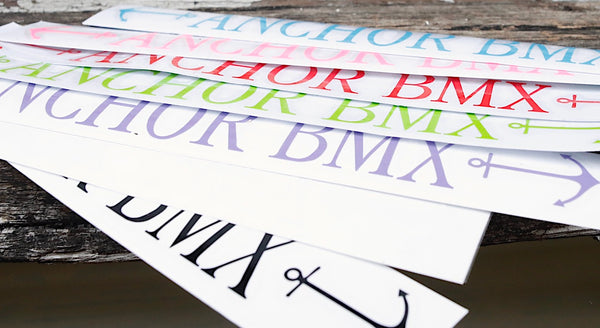 ANCHOR BMX
ANCHOR BMX
ANCHOR BMX
ANCHOR BMX
ANCHOR BMX
BMX